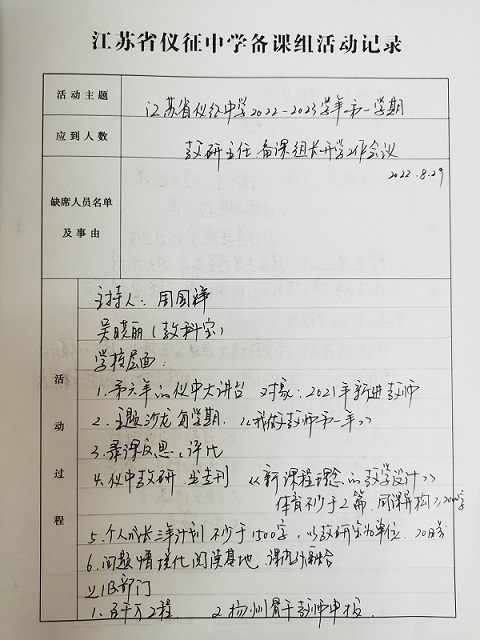 江苏省仪征中学备课组活动记录
活动主题
江苏省仪征中学2022-2023学年第一学期
应到人数
教研主任 备课组长开学工作会议
2022.8.29
缺席人员名单
及事由
活动过程
主持人:周国泽
吴晓丽(教科室)
学校层面:
1.第六年的仪中大讲台 对象:2021年新进教师
2.主题沙龙 每学期.《我做教师第一年》
3.录课反思、评比
4.仪中教研 《新课程理念的教学设计》
体育不少于2篇.同课异构
5.个人成长三年计划 不少于1500字,以教研室为单位.
6.问题情境化
部门
2.扬州骨干教师申报.